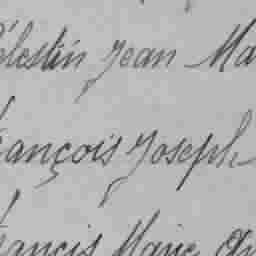 élestin Jean Ma
rançois Joseph
rancis Marie